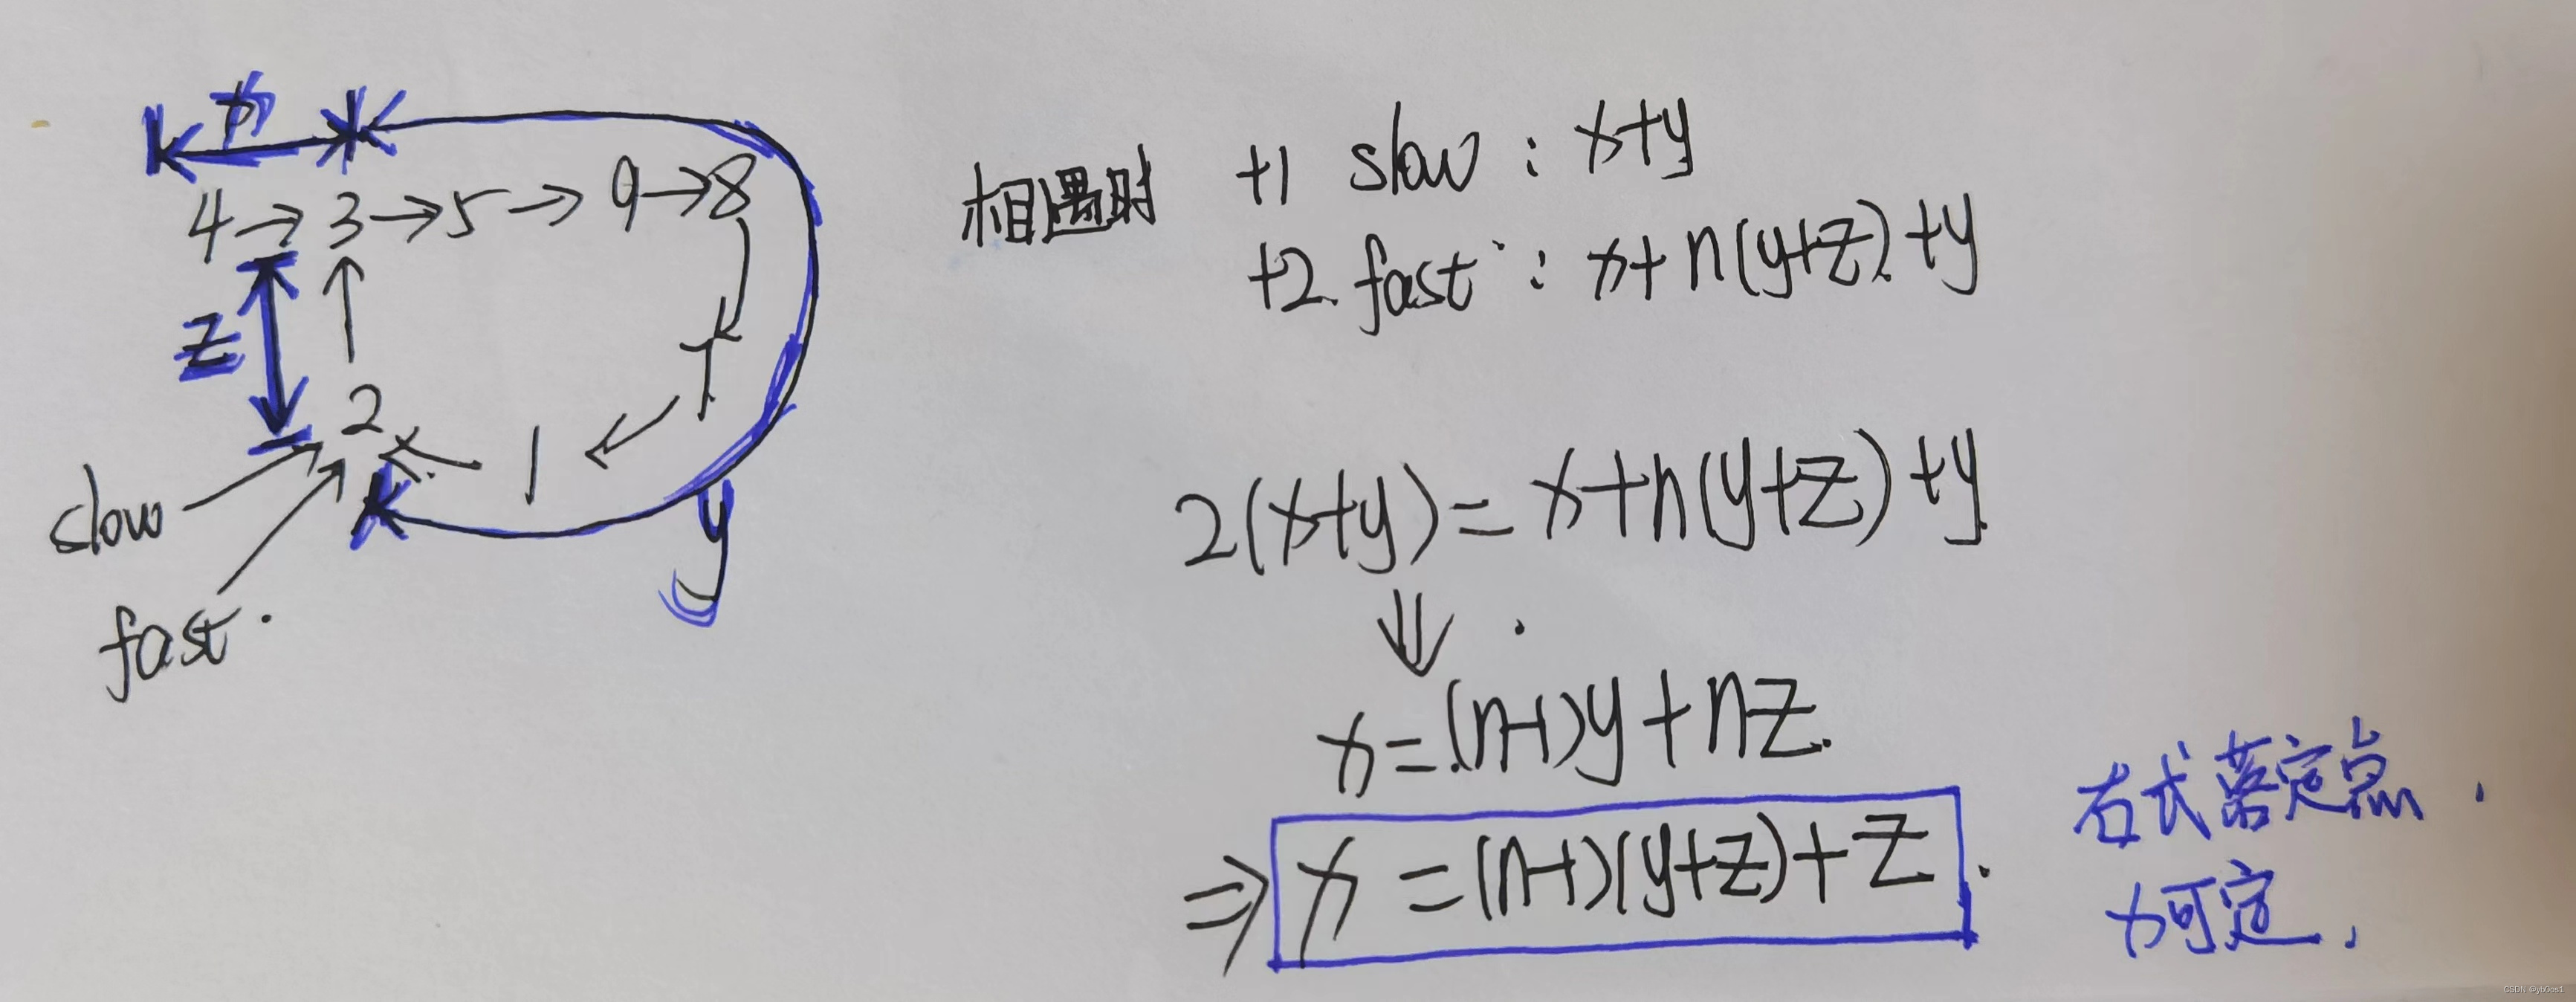 x
4→3→5→9→8
z
7
2
1
slow
fast.
y
相遇时 +1 slow : x+y
+2. fast : x+n(y+z)+y
2(x+y)=x+n(y+z)+y
⇓
x=(n-1)y+nz.
⇒ x=(n-1)(y+z)+z.
右式落定点.
x可定.
CSDN @yb0os1